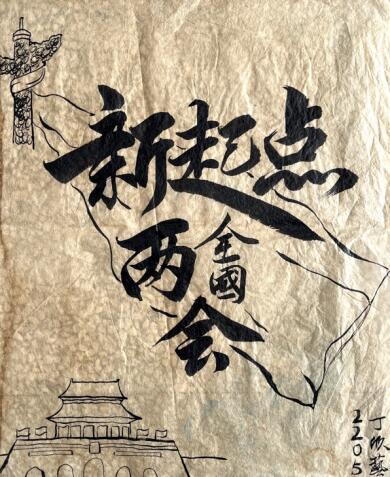 新起点
全國
两会
丁欣藝
2205